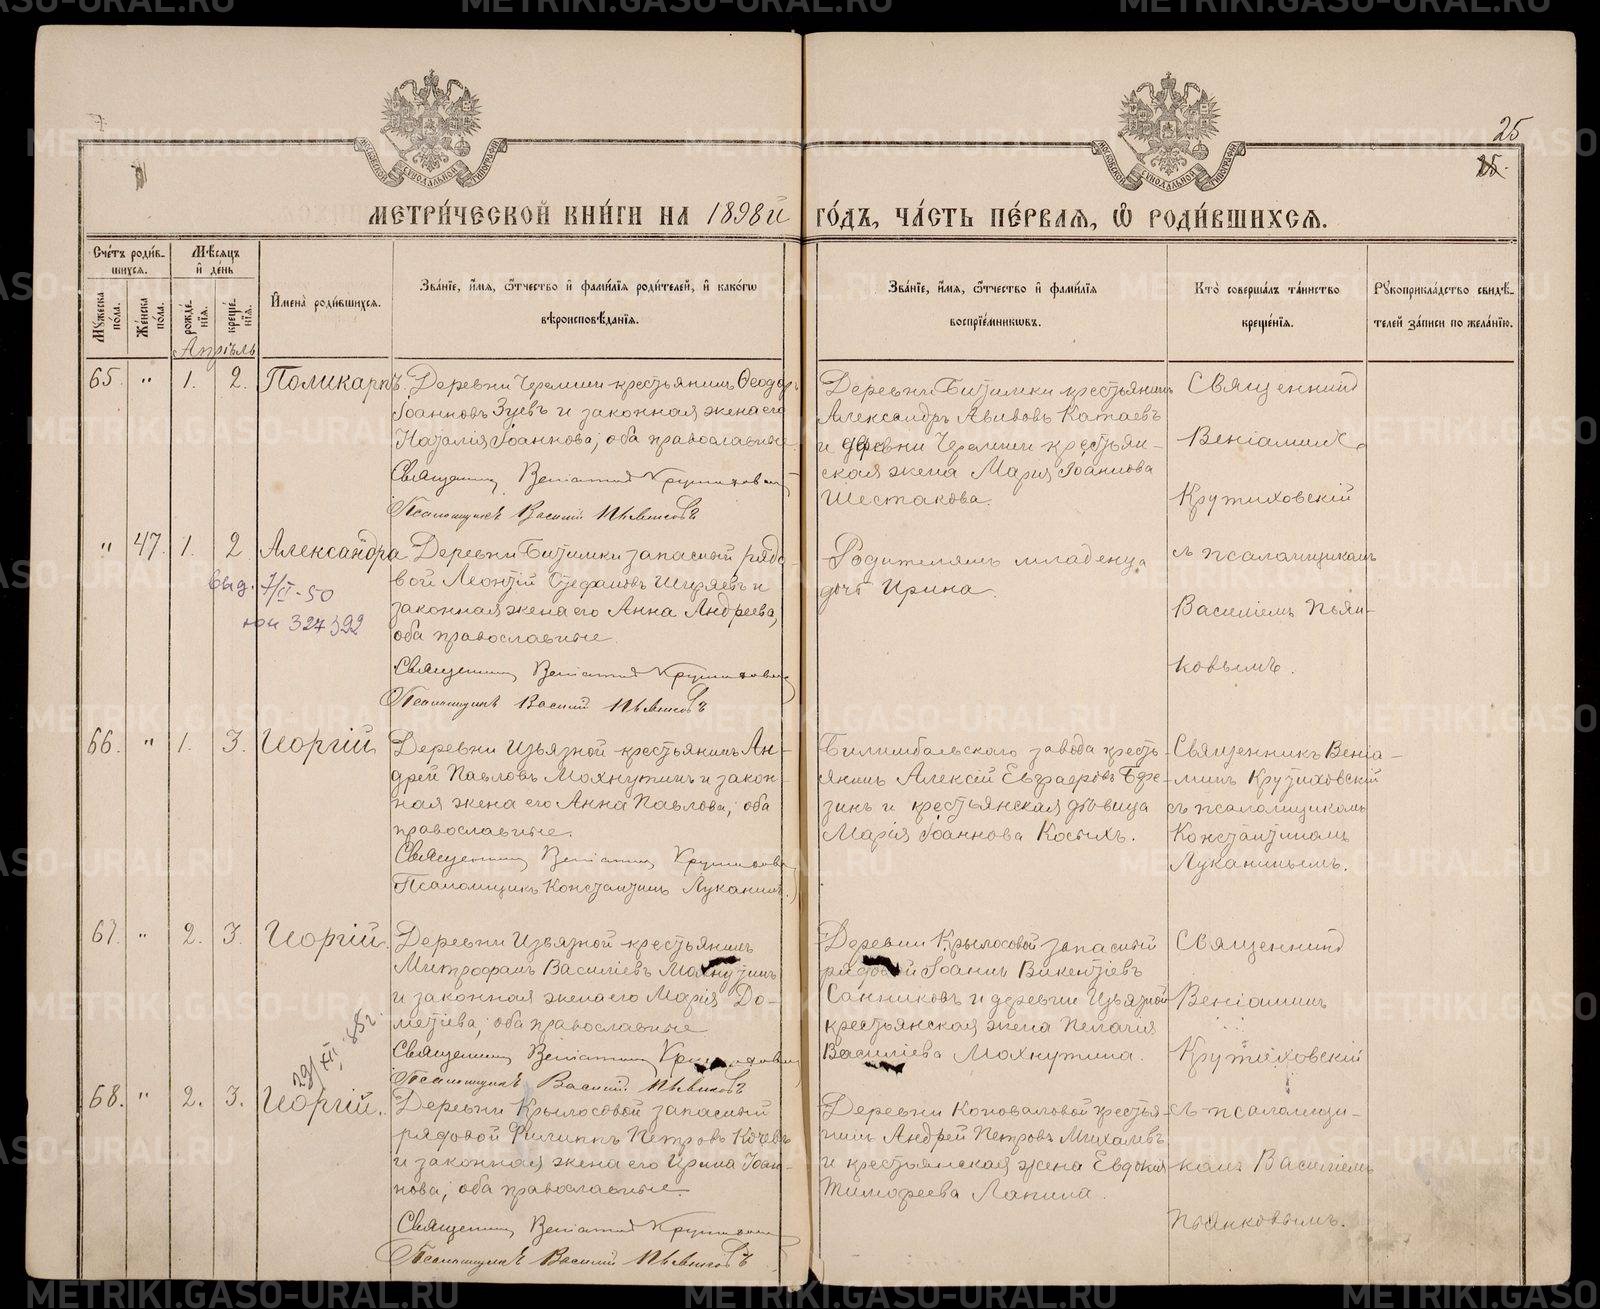 25
25.
МОСКОВСКОЙ СУНОДАЛЬНОЙ ТИПОГРАФІИ
МОСКОВСКОЙ СУНОДАЛЬНОЙ ТИПОГРАФІИ
МЕТРИ́ЧЕСКОЙ КНИ́ГИ НА 1898й ГО́ДЪ, ЧА́СТЬ ПЕ́РВАЯ, Ѡ РОДИ́ВШИХСЯ.
Сче́тъ роди́в-
шихся.
Мѣ́сяцъ
и де́нь
Му́жеска по́ла.
Же́нска по́ла.
рожде́нїя.
креще́нїя.
Имена̀ роди́вшихся.
Зва́нїе, и́мя, ѻ́тчество и фами́лїя роди́телей, и како́гѡ
вѣроисповѣ́данїя.
Зва́нїе, и́мя, ѻ́тчество и фами́лїя
воспрїе́мникѡвъ.
Кто̀ соверша́лъ та́инство
креще́нїя.
Рꙋкоприкла́дство свидѣ́-
телей за́писи по жела́нїю.
Апрѣль
65. " 1. 2. Поликарпъ.
Деревни Черемши крестьянинъ Ѳеодоръ
Іоанновъ Зуевъ и законная жена его
Наталія Іоаннова, оба православные
Священник Веніамин Крутиховский
Псаломщикъ Василий Пьянковъ
Деревни Битимки крестьянинъ
Александръ Авивовъ Катаевъ
и деревни Черемши крестьян-
ская жена Марія Іоаннова
Шестакова.
Священникъ
Веніаминъ
Крутиховскій
съ псаломщикомъ
Василіемъ Пьян-
ковымъ.
" 47. 1. 2 Александра
выд. 7/II-50
юи 327392
Деревни Битимки запасный рядо-
вой Леонтій Стефановъ Ширяевъ и
законная жена его Анна Андреева,
оба православные.
Священник Веніамин Крутиховский
Псаломщикъ Василий Пьянковъ
Родителямъ младенца
дочь Ирина.
66. " 1. 3. Георгій
Деревни Извязной крестьянинъ Ан-
дрей Павловъ Махнутинъ и закон-
ная жена его Анна Павлова, оба
православные.
Священник Веніамин Крутиховский
Псаломщикъ Константинъ Луканинъ.
Билимбаевскаго завода кресть-
янинъ Алексій Евграфовъ Бре-
зинъ и крестьянская дѣвица
Марія Іоаннова Косыхъ.
Священникъ Веніа-
минъ Крутиховскій
съ псаломщикомъ
Константиномъ
Луканинымъ.
67. " 2. 3. Георгій.
Деревни Извязной крестьянинъ
Митрофанъ Василіевъ Махнутинъ
и законная жена его Марія До-
метіева, оба православные
Священник Веніамин Крутиховский
Псаломщикъ Василий Пьянковъ
Деревни Крылосовой запасный
рядовой Іоаннъ Викентіевъ
Санниковъ и деревни Извязной
крестьянская жена Пелагія
Василіева Махнутина.
Священникъ
Веніаминъ
Крутиховскій
съ псаломщи-
комъ Василіемъ
Пьянковымъ.
29/XII 85г.
68. " 2. 3. Георгій.
Деревни Крылосовой запасный
рядовой Филиппъ Петровъ Кочевъ
и законная жена его Ирина Іоан-
нова, оба православные.
Священник Веніамин Крутиховский
Псаломщикъ Василий Пьянковъ
Деревни Коноваловой крестья-
нинъ Андрей Петровъ Михалевъ
и крестьянская жена Евдокія
Тимофеева Лапина.
METRIKI.GASO-URAL.RU